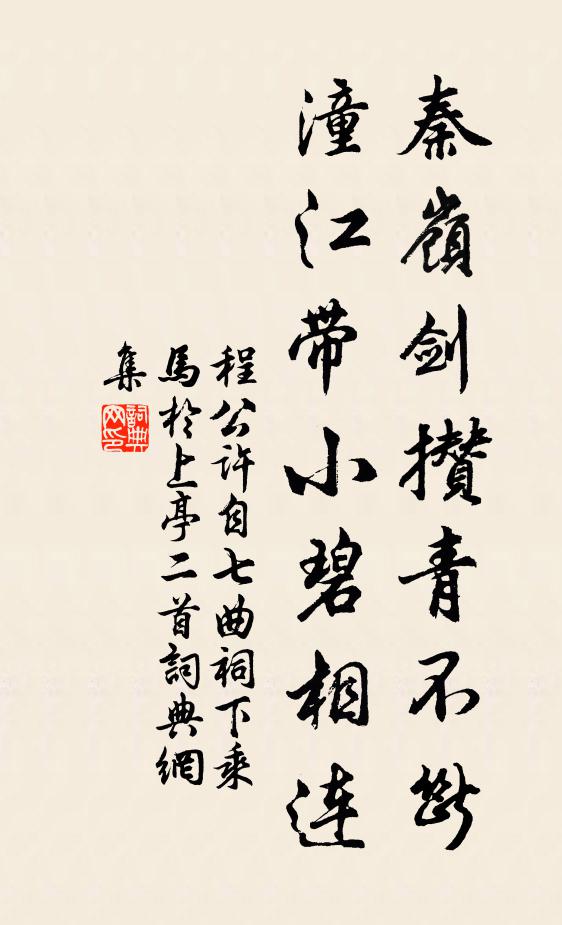 秦嶺劍攢青不斷
潼江帶小碧相連
程公許自七曲祠下乘
馬於上亭二首詞典網
集
詞典
网印